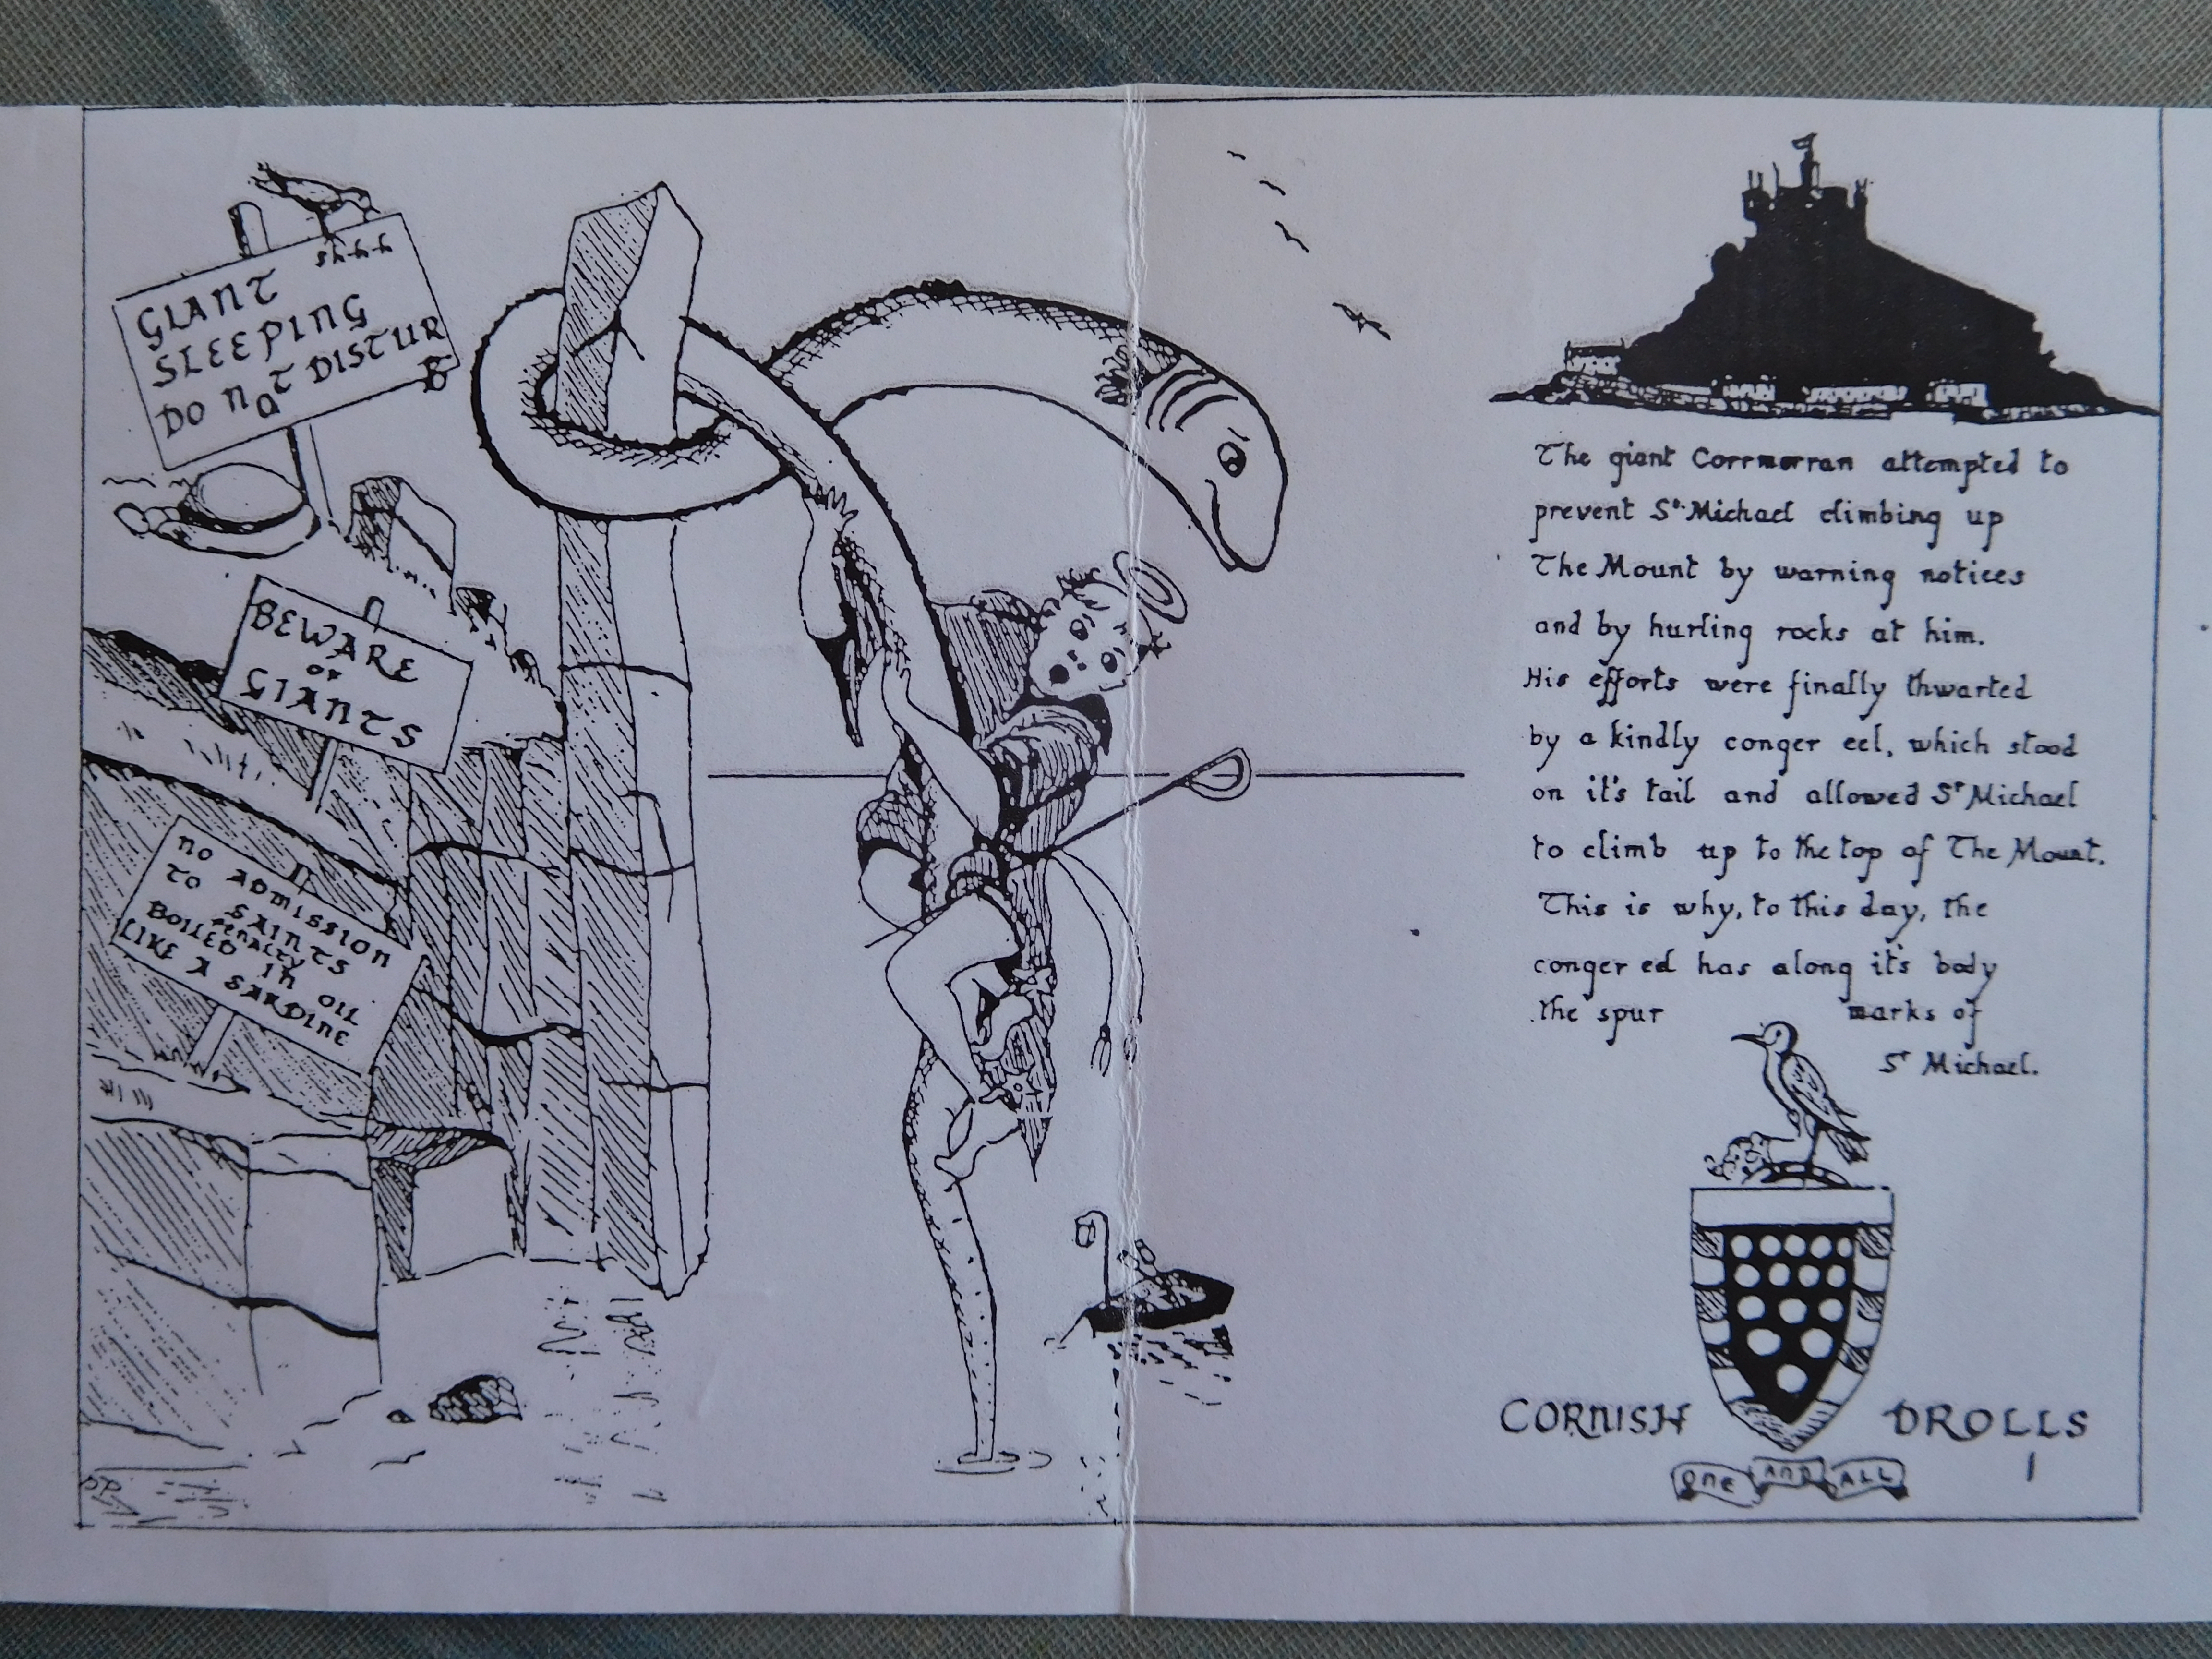 shhhh
GIANT
SLEEPING
DO NOT DISTUR
B
BEWARE
OF
GIANTS
NO ADMISSION
TO SAINTS
PENALTY
BOILED IN OIL
LIKE A SARDINE
The giant Corrmorran attempted to
prevent St. Michael climbing up
The Mount by warning notices
and by hurling rocks at him.
His efforts were finally thwarted
by a kindly conger eel, which stood
on it's tail and allowed St Michael
to climb up to the top of The Mount.
This is why, to this day, the
conger eel has along it's body
the spur marks of
St Michael.
CORNISH DROLLS
1
ONE AND ALL